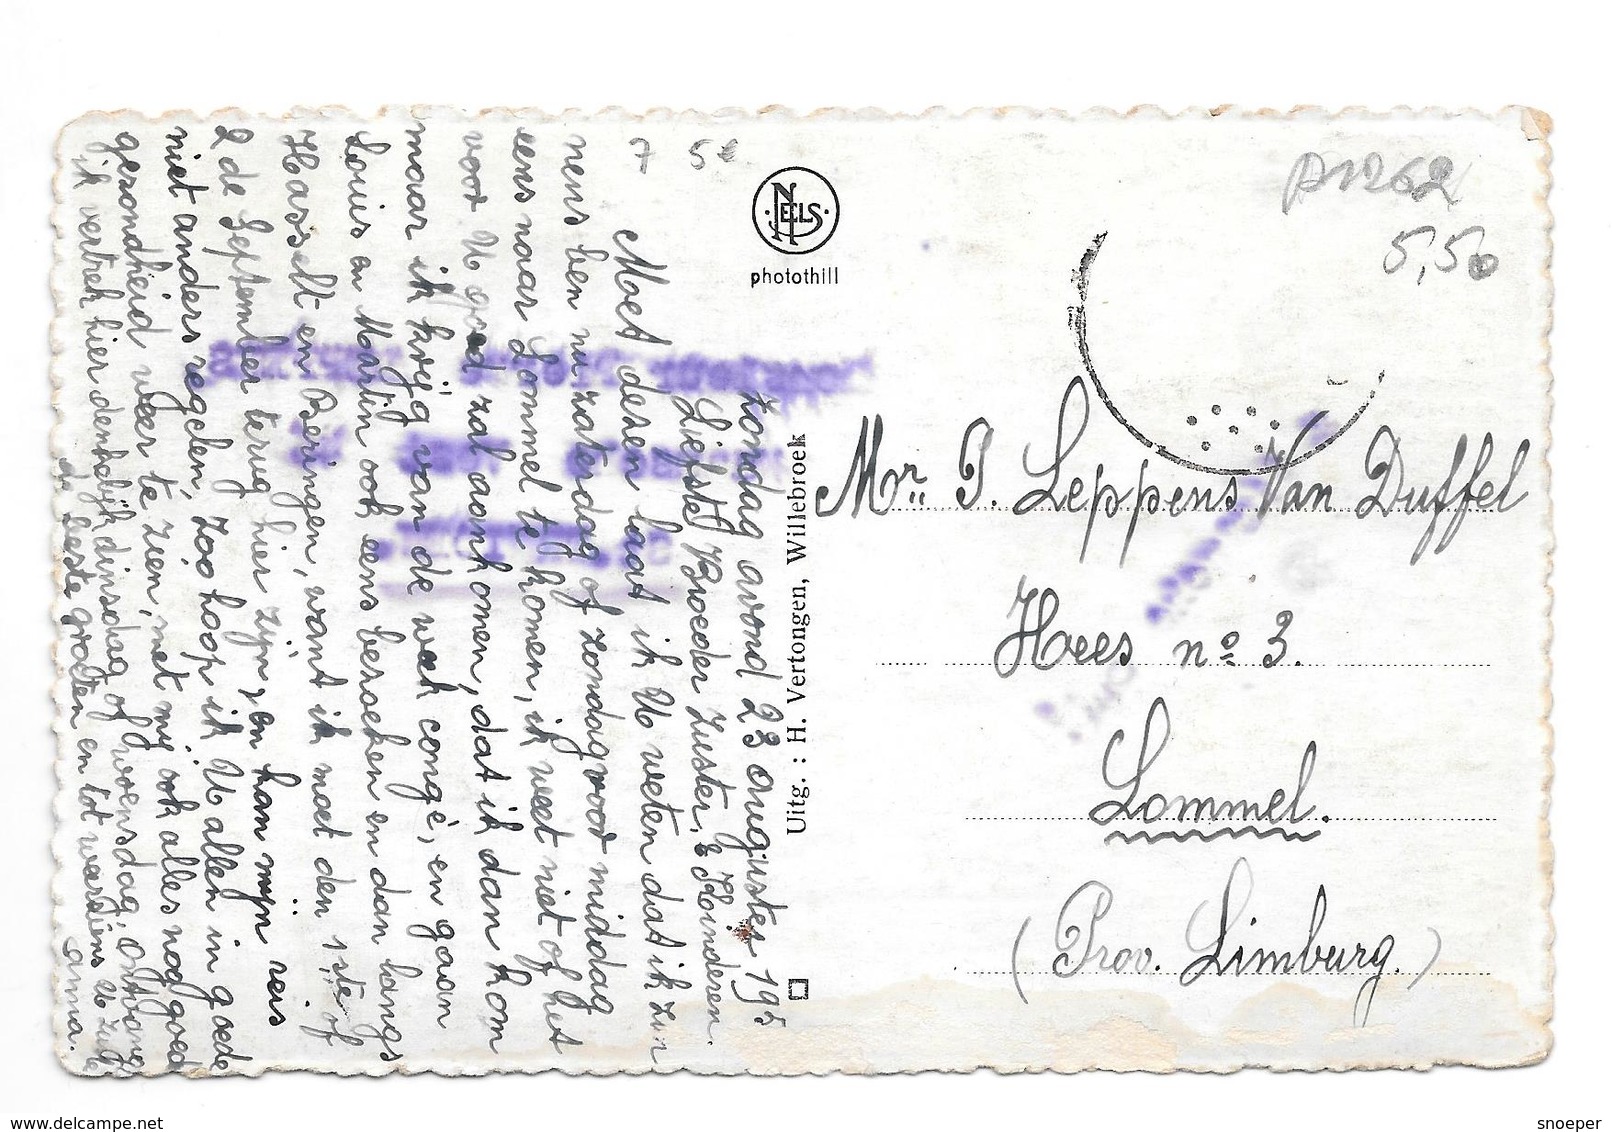 Zondag avond 23 augustes 195
Liefste Broeder Zuster, & Kinderen.
Moet dezen laat ik U weten dat ik zun
nens ben nu zaterdag of zondag voor middag
eens naar Lommel te komen, ik weet niet of het
voor U goed zal aankomen, dat ik dan kom
maar ik krijg van de week congé, en gaan
Louis en Martin ook eens bezoeken en dan langs
Hasselt en Beringen, want ik moet den 1ste of
2de September terug hier zijn, en kan mijn reis
niet anders regelen, zoo hoop ik U allen in goede
gezondheid weer te zien, met mij ook alles nog goed
ik vertrek hier denkelijk dinsdag of woensdag,
de beste groeten en tot weerziens U
anna.
7 5e
NELS
photothill
Uitg. : H. Vertongen, Willebroek
A1262
5,50
Mr. P. Leppens Van Duffel
Hees no 3.
Lommel.
(Prov. Limburg.)
www.delcampe.net
snoeper